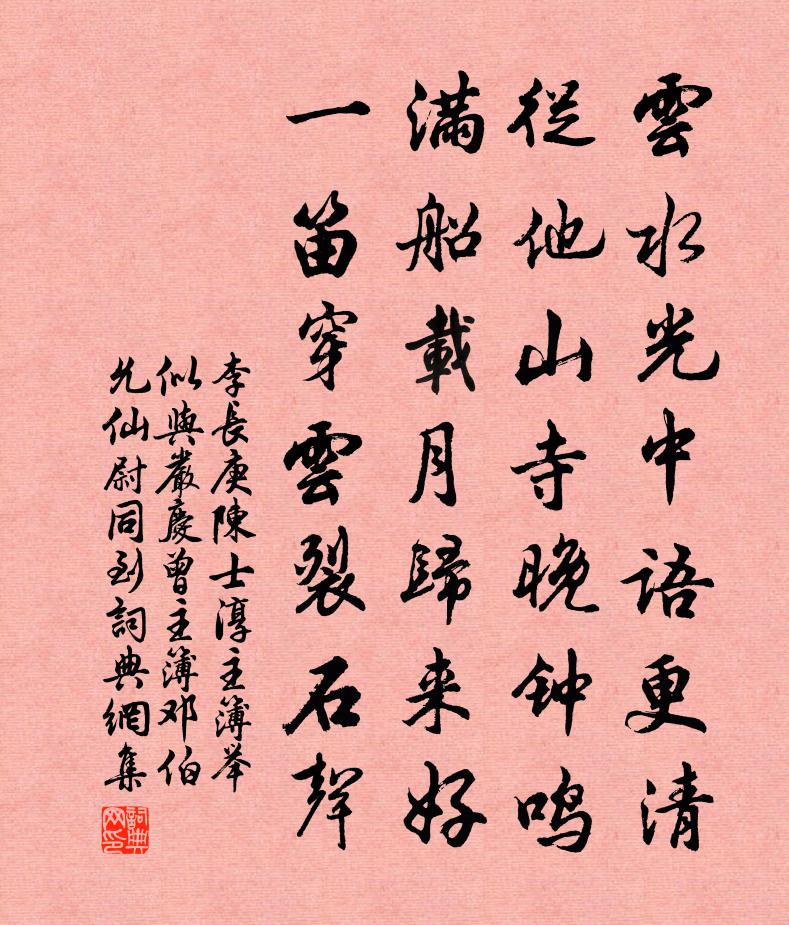 雲水光中語更清
從他山寺晚钟鸣
满船載月歸来好
一笛穿雲裂石聲
李長庚陳士淳主簿举
似與嚴慶曾主簿邓伯
允仙尉同到詞典網集
詞典网印